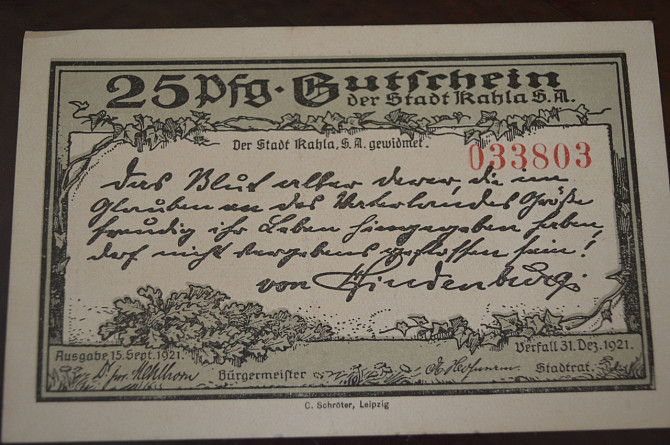 25 Pfg. Gutschein
der Stadt Kahla S.A.
Der Stadt Kahla, S.A. gewidmet.
033803
Das Blut aller derer, die im
Glauben an des Vaterlandes Größe
freudig ihr Leben hingegeben haben,
darf nicht vergebens geflossen sein!
von Hindenburg.
Ausgabe 15. Sept. 1921.
Verfall 31. Dez. 1921.
Bürgermeister
Stadtrat.
C. Schröter, Leipzig